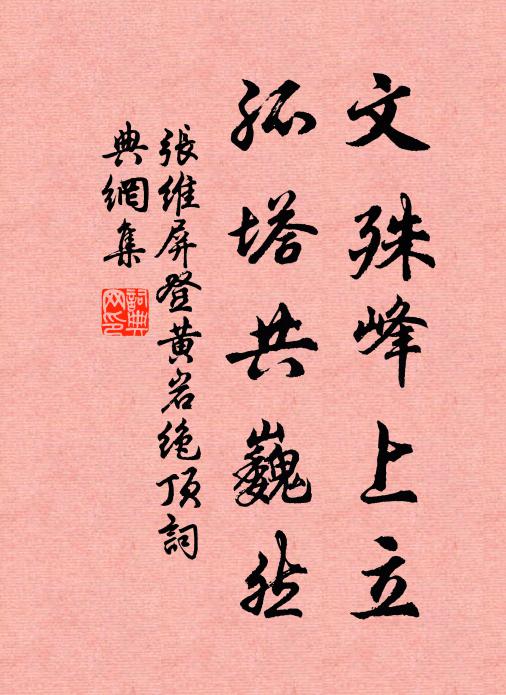 文殊峰上立
孤塔共巍然
張維屏登黄岩绝顶詞
典網集
詞典
网印